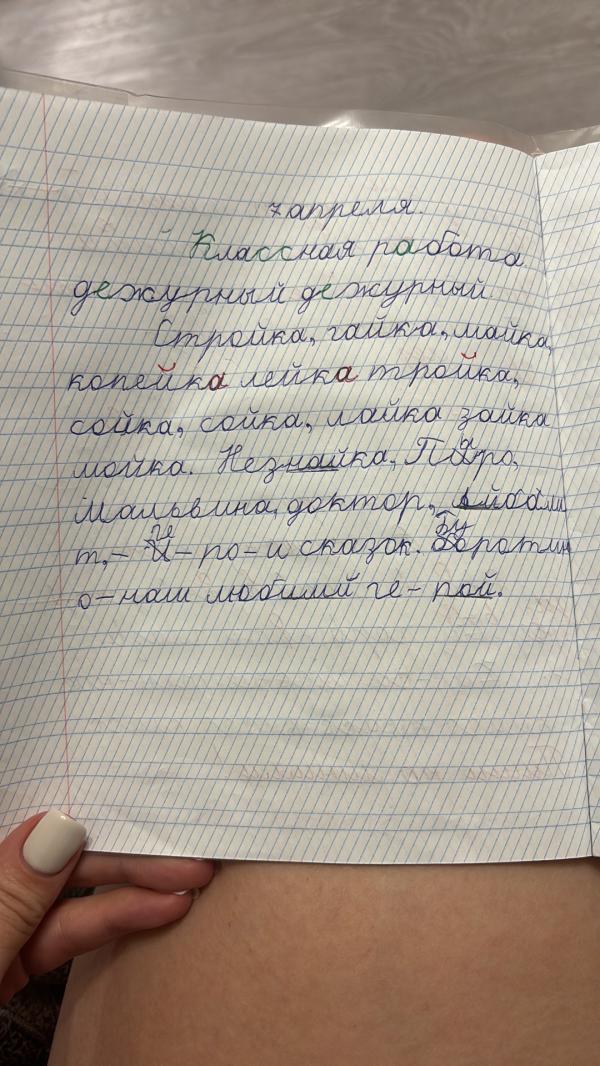 7 апреля.
Классная работа
дежурный дежурный.
Стройка, гайка, майка,
копейка лейка тройка,
сойка, сойка, лайка зайка
мойка. Незнайка, Пйаро,
Мальвина, доктор, Айболи
т,- ге - ро - и сказок. Буратин
о - наш любимй ге - рой.